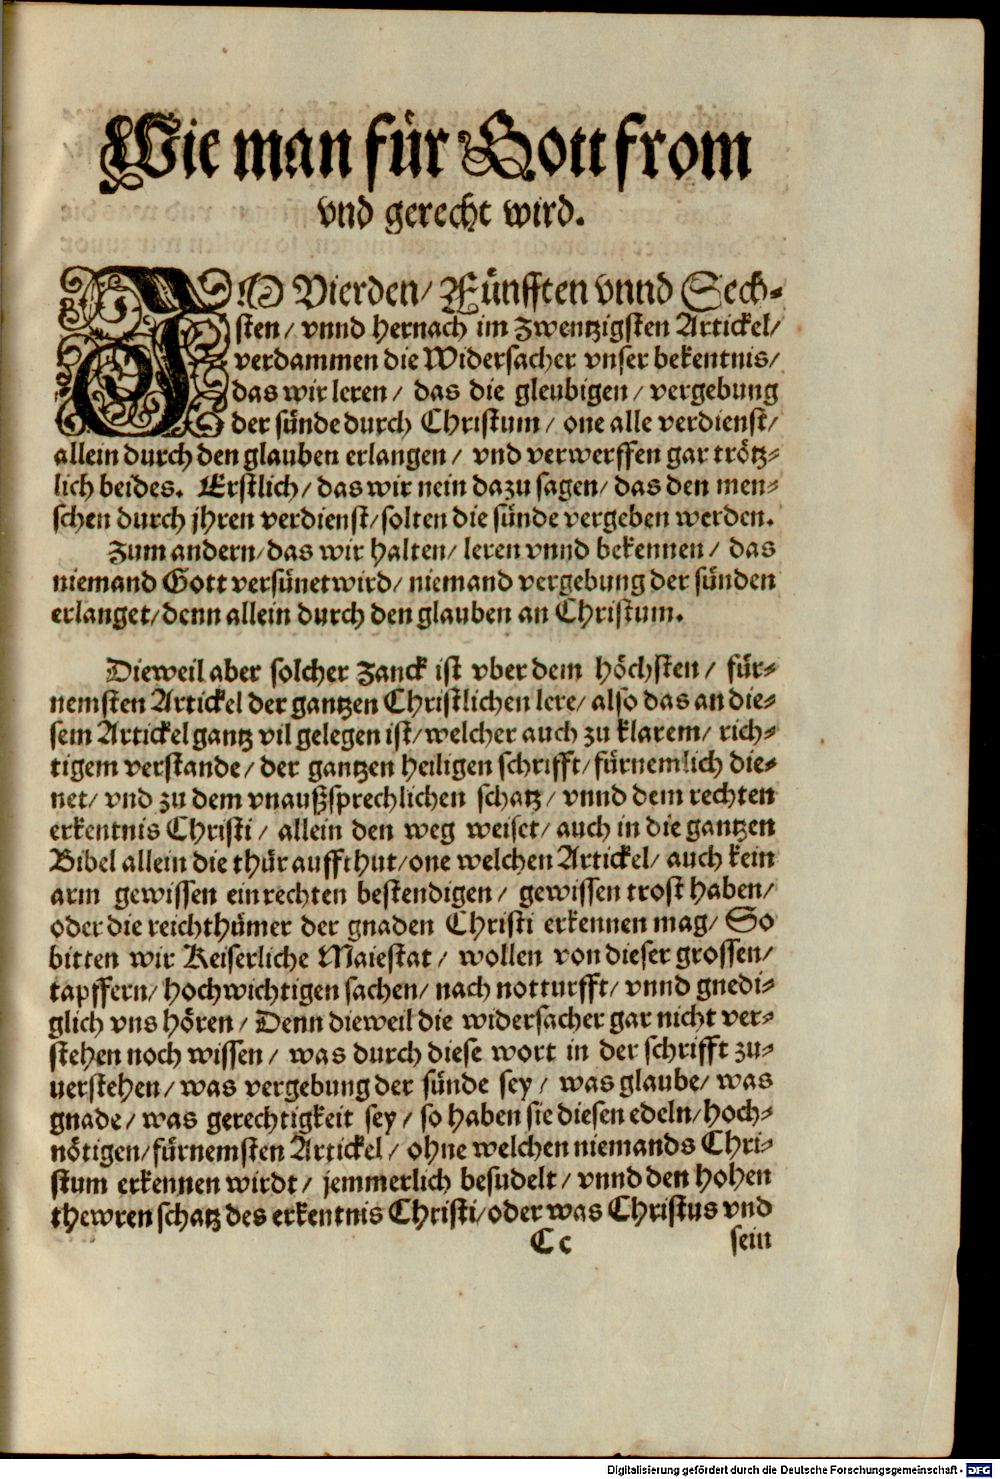 Wie man für Gott from
vnd gerecht wird.
IM Vierden/ Fünfften vnnd Sech-
sten/ vnnd hernach im Zwentzigsten Artickel/
verdammen die Widersacher vnser bekentnis/
das wir leren/ das die gleubigen/ vergebung
der sünde durch Christum/ one alle verdienst/
allein durch den glauben erlangen/ vnd verwerffen gar trötz-
lich beides. Erstlich/ das wir nein dazu sagen/ das den men-
schen durch jhren verdienst/ solten die sünde vergeben werden.
Zum andern/ das wir halten/ leren vnnd bekennen/ das
niemand Gott versünet wird/ niemand vergebung der sünden
erlanget/ denn allein durch den glauben an Christum.
Dieweil aber solcher Zanck ist vber dem höchsten/ für-
nemsten Artickel der gantzen Christlichen lere/ also das an die-
sem Artickel gantz vil gelegen ist/ welcher auch zu klarem/ rich-
tigem verstande/ der gantzen heiligen schrifft/ fürnemlich die-
net/ vnd zu dem vnaußsprechlichen schatz/ vnnd dem rechten
erkentnis Christi/ allein den weg weiset/ auch in die gantzen
Bibel allein die thür auffthut/ one welchen Artickel/ auch kein
arm gewissen ein rechten bestendigen/ gewissen trost haben/
oder die reichthümer der gnaden Christi erkennen mag/ So
bitten wir Keiserliche Maiestat/ wollen von dieser grossen/
tapffern/ hochwichtigen sachen/ nach notturfft/ vnnd gnedi-
glich vns hören/ Denn dieweil die widersacher gar nicht ver-
stehen noch wissen/ was durch diese wort in der schrifft zu-
uerstehen/ was vergebung der sünde sey/ was glaube/ was
gnade/ was gerechtigkeit sey/ so haben sie diesen edeln/ hoch-
nötigen/ fürnemsten Artickel/ ohne welchen niemands Chri-
stum erkennen wirdt/ jemmerlich besudelt/ vnnd den hohen
thewren schatz des erkentnis Christi/ oder was Christus vnd
Cc sein
Digitalisierung gefördert durch die Deutsche Forschungsgemeinschaft - DFG